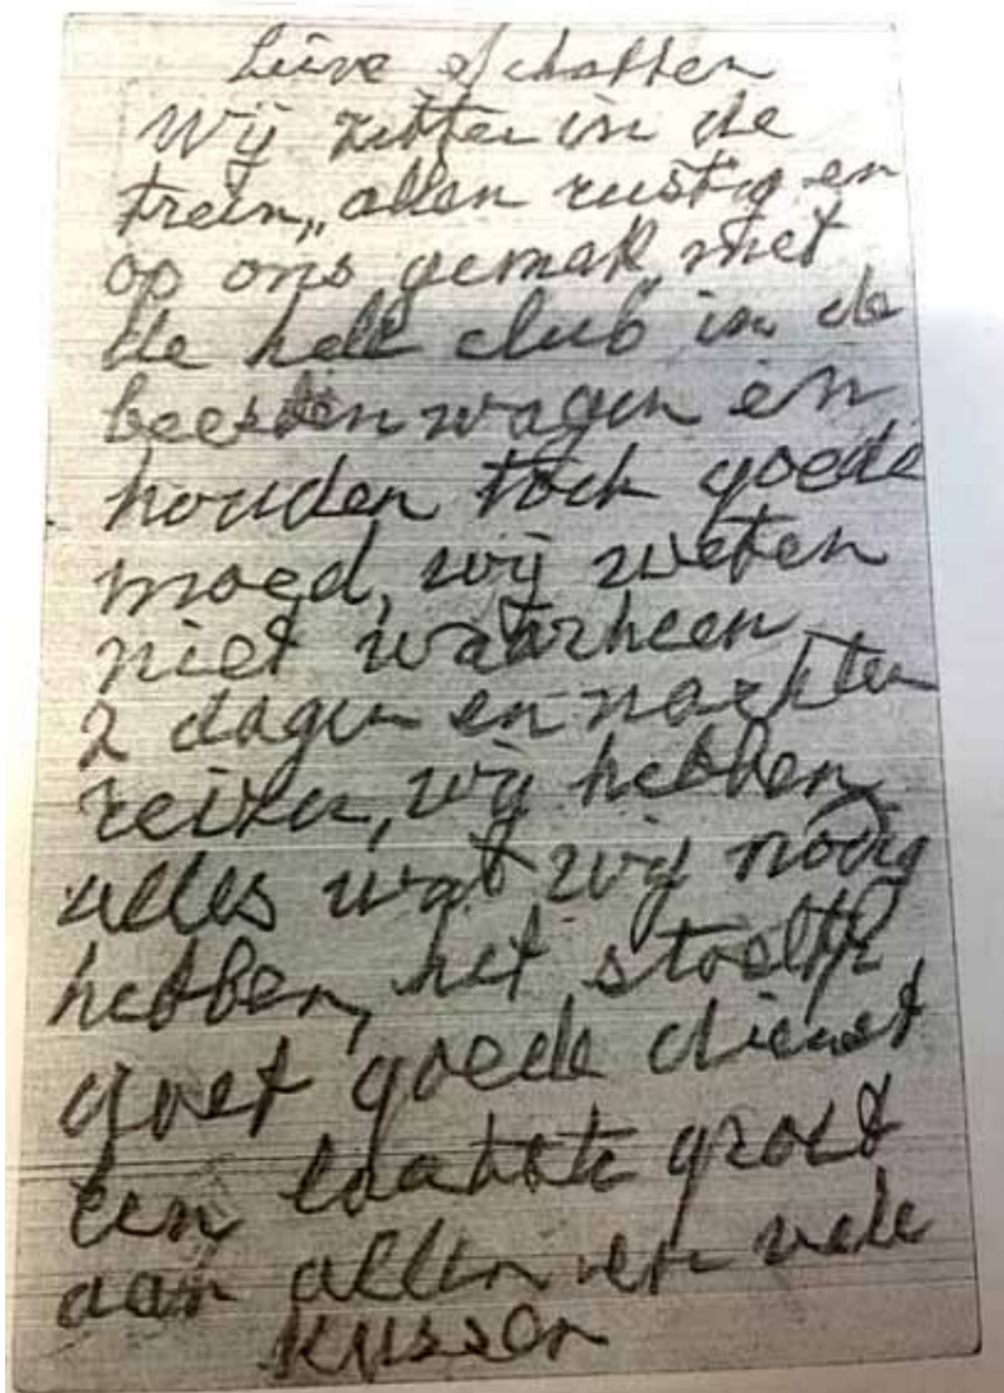 Lieve schatten
Wij zitten in de
trein,, allen rustig en
op ons gemak, met
de hele club in de
beestenwagen en
houden toch goede
moed, wij weten
niet waarheen
2 dagen en nachten
reizen, wij hebben
alles wat wij nodig
hebben, het stoeltje
goet goede dienst
Een laatste groet
aan allen en vele
Kussen